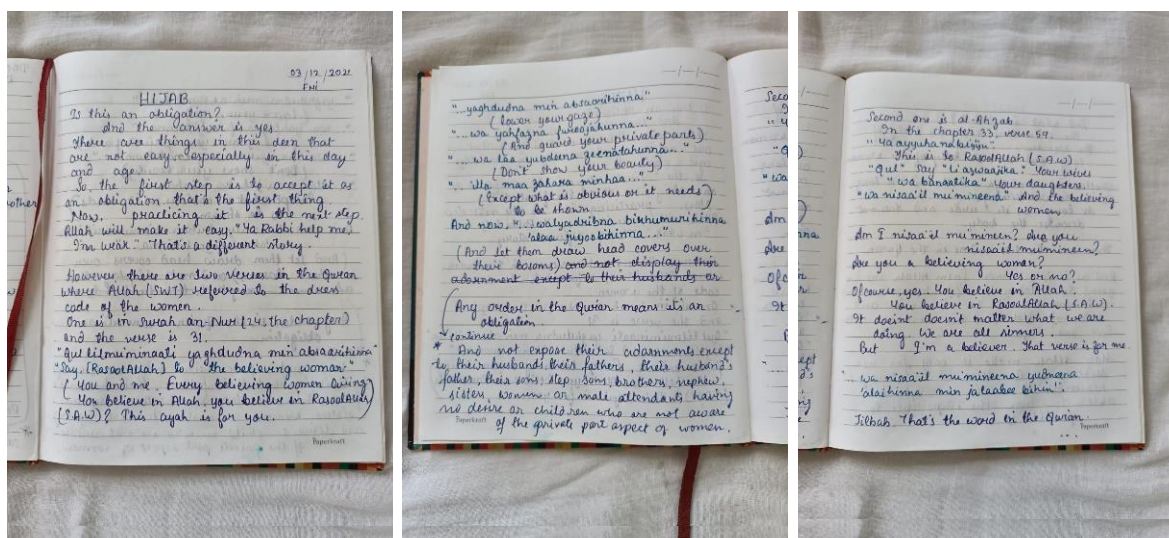 03/12/2021
Fri
HIJAB
Is this an obligation?
And the answer is yes.
There are things in this deen that
are not easy especially in this day
and age.
So, the first step is to accept it as
an obligation that's the first thing
Now, practicing it is the next step.
Allah will make it easy. "Ya Rabbi help me,
I'm weak." That's a different story.
However there are two verses in the Quran
where Allah (SWT) referred to the dress
code of the women.
One is in Surah an-Nur (24, the chapter)
and the verse is 31.
"Qul lilmuminaati yaghdudna min absaarihinna"
"Say, [RasoolAllah] to the believing woman"
(You and me. Every believing women living
You believe in Allah, you believe in RasoolAllah
(S.A.W)? This ayah is for you.
Paperkraft
"...yaghdudna min absaarihinna"
(lower your gaze)
"...wa yahfazna furoojahunna..."
(And guard your private parts)
"...wa laa yubdeena zeenatahunna..."
(Don't show your beauty)
"...illa maa zahara minhaa..."
(Except what is obvious or it needs)
to be shown
And now, "...walyadribna bikhumurihinna
'alaa juyoobihinna..."
(And let them draw head covers over
their bosoms) and not display their
adornment except to their husbands or
Any order in the Quran means its an
obligation
continue
* And not expose their adornments except
to, their husbands, their fathers, their husband's
father, their sons, step sons, brothers, nephew,
sisters, women or male attendants having
no desire or children who are not aware
of the private part aspect of women.
Paperkraft
Second one is al-Ahzab.
In the chapter 33, verse 59.
"Ya ayyuhanabiyyu"
This is to RasoolAllah (S.A.W)
"Qul" Say "li azwaajika." Your wives
"wa banaatika" Your daughters.
"wa nisaa'il mu'mineena" And the believing
women.
Am I nisaa'il mu'mineen? Are you
nisaa'il mumineen?
Are you a believing woman?
Yes or no?
Ofcourse, yes. You believe in Allah.
You believe in RasoolAllah (S.A.W).
It doesnt doesn't matter what we are
doing. We are all sinners.
But I'm a believer. That verse is for me.
"wa nisaa'il mu'mineena yudneena
'alaihinna min jalaabee bihin".
Jilbab. That's the word in the Qur'an.
...
Paperkraft